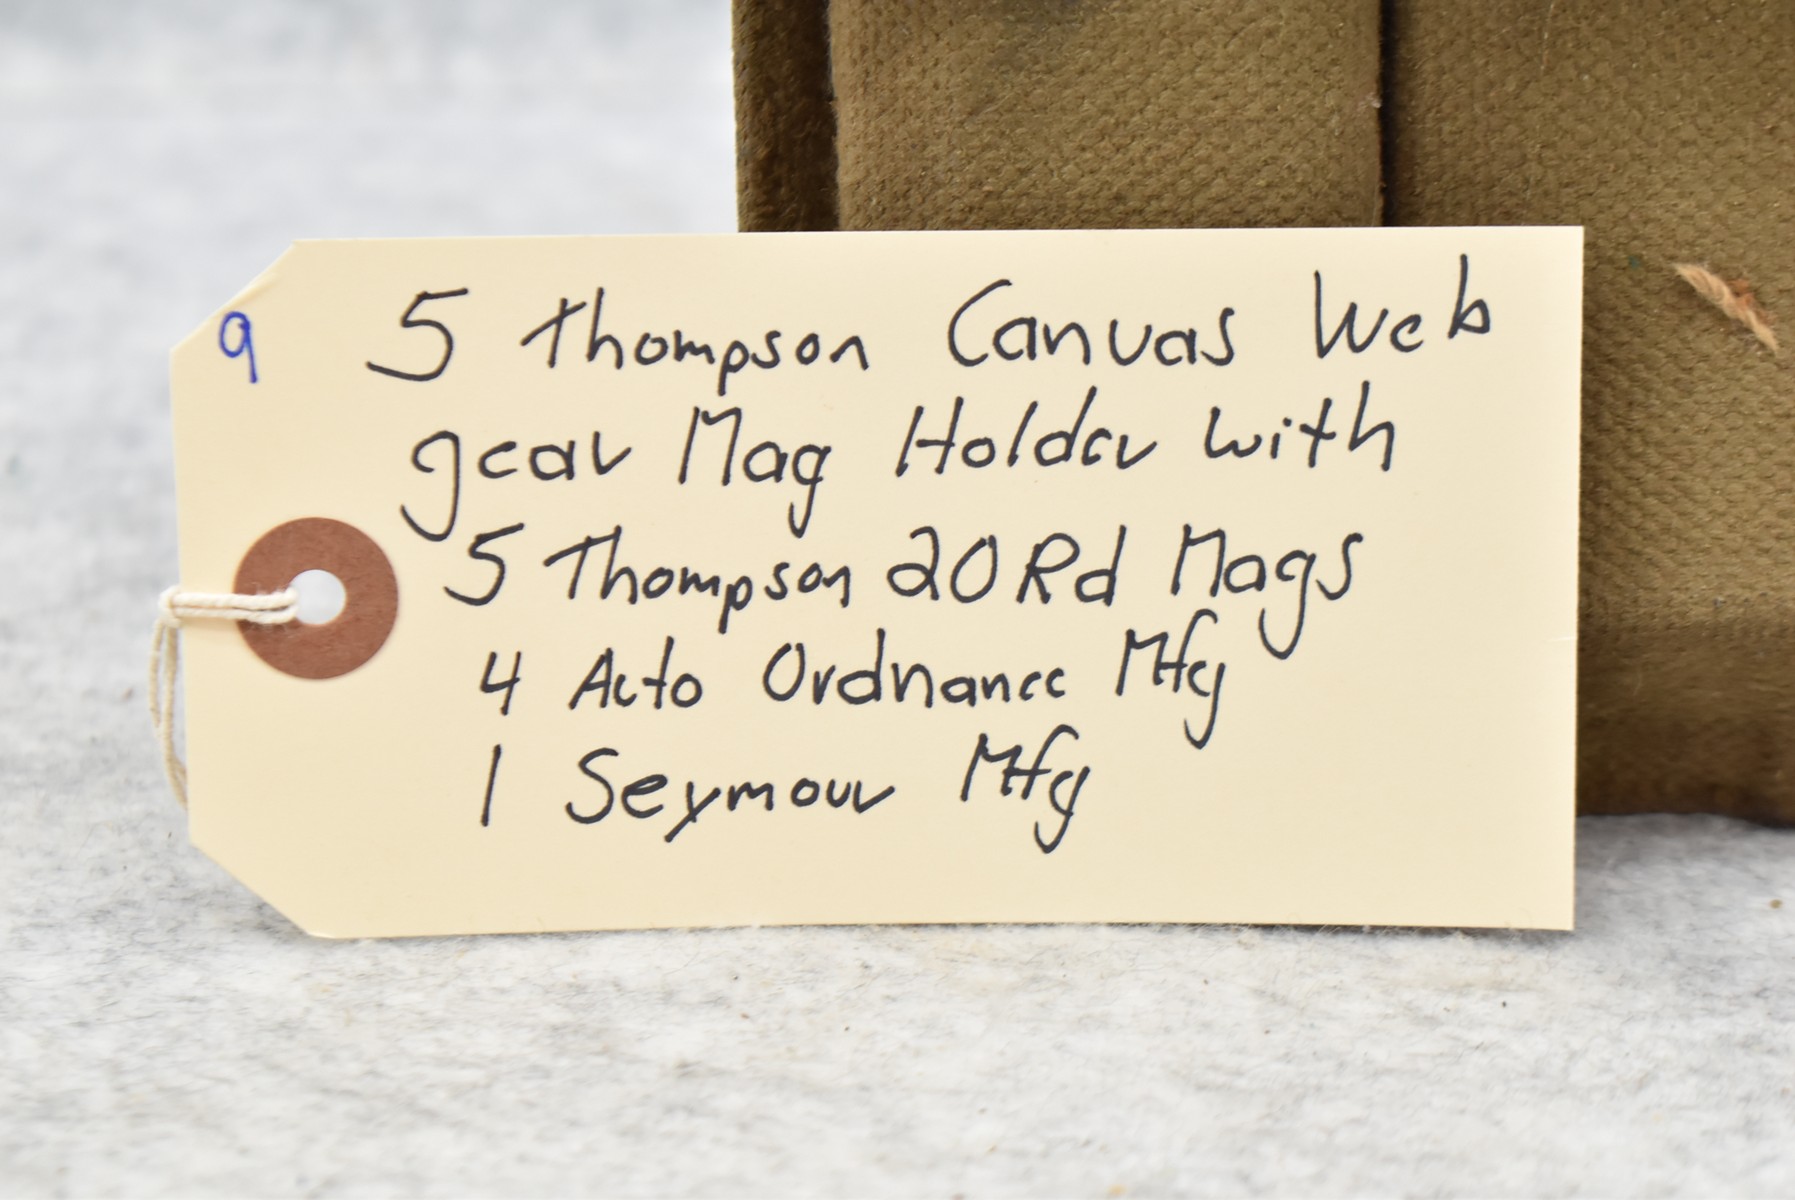 9
5 Thompson Canvas Web
gear Mag Holder with
5 Thompson 20Rd Mags
4 Auto Ordnance Mfg
1 Seymour Mfg